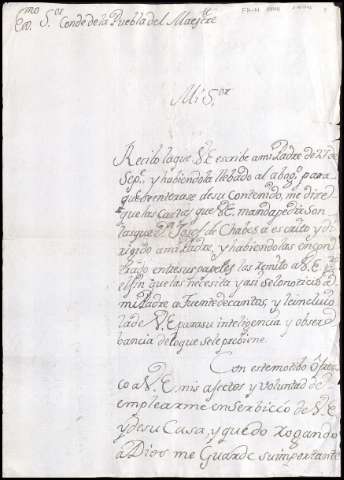 Exmo. Sor. Conde de la Puebla del Maestre
Mi Sor.
Recibo la que V.E. escribe a mi Padre de 27 de
Sepe. y habiendola llebado al abogo. para
que se enterase de su contenido, me dice
que las Cartas que V.E. manda pedir son
las que Dn. Josef de Chabes a escrito y di
rigido a mi Padre, y habiendolas encon
trado entre sus papeles las remito a V.E.
el fin que las necesita y asi se lo noticio a
mi Padre a Fuente de cantos, y le incluio
la de V.E. para su inteligencia y obser
bancia de lo que se le probiene.
Con este motibo ofrez
co a V.E. mis afectos y voluntad de
emplearme en serbicio de V.E
y de su Casa, y quedo rogando
á Dios me Guarde su importante